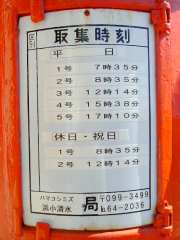 取集時刻
平 日
1号 7時35分
2号 8時35分
3号 12時14分
4号 15時38分
5号 17時10分
休日・祝日
1号 8時35分
2号 12時14分
ハマコシミズ
浜小清水 局 〒099-3499
℡64-2036